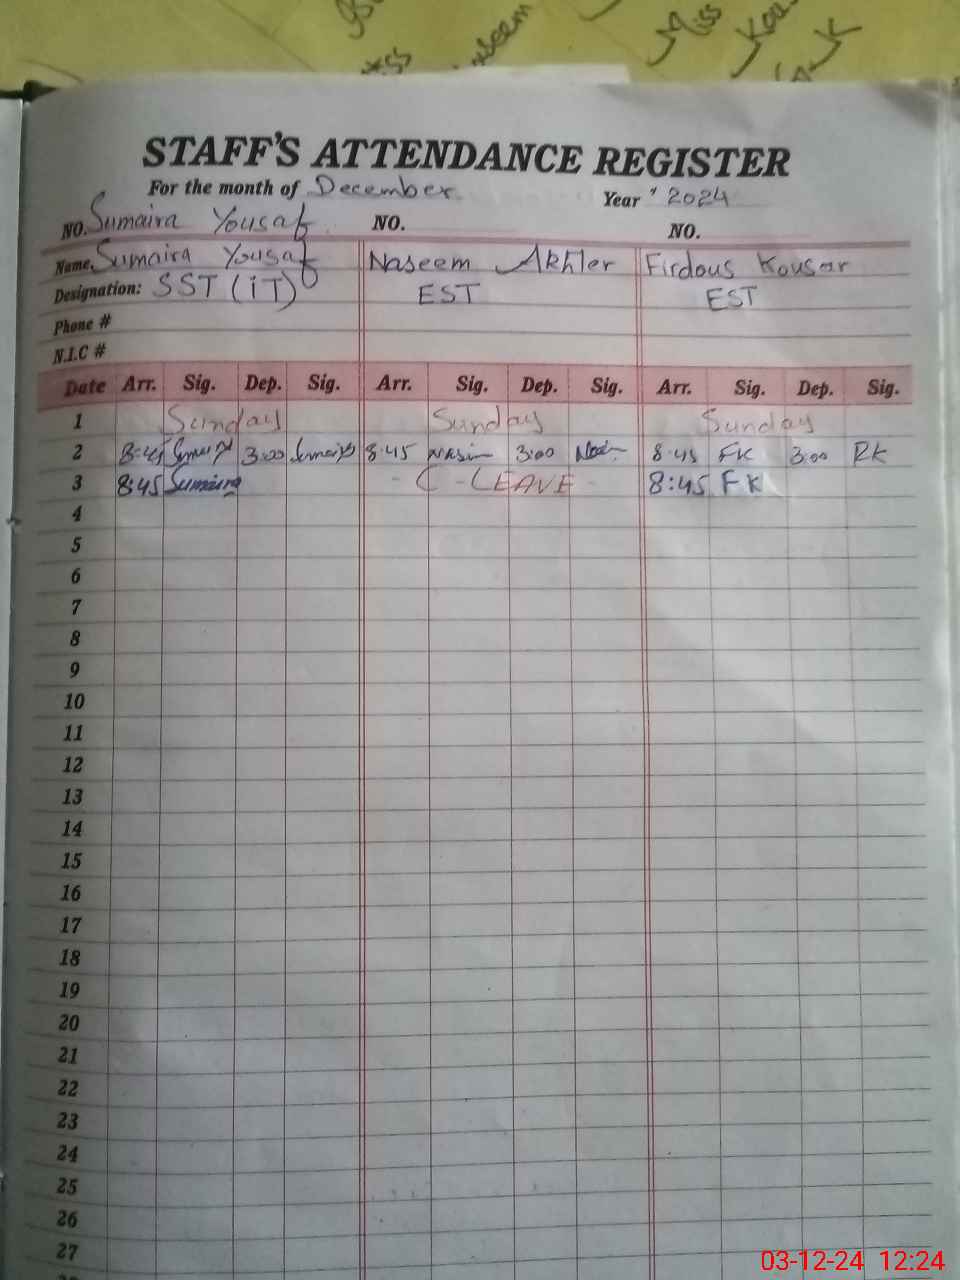 Miss
STAFF'S ATTENDANCE REGISTER
For the month of December Year 2024
NO. Sumaira Yousaf NO. NO.
Name. Sumaira Yousaf Naseem Akhter Firdous Kousar
Designation: SST (iT) EST EST
Phone #
N.I.C #
Date Arr. Sig. Dep. Sig. Arr. Sig. Dep. Sig. Arr. Sig. Dep. Sig.
1 Sunday Sunday Sunday
2 8:45 3:00 8:45 3:00 8:45 FK 3:00
3 8:45 Sumaira - C - LEAVE - 8:45 FK
4
5
6
7
8
9
10
11
12
13
14
15
16
17
18
19
20
21
22
23
24
25
26
27
03-12-24 12:24